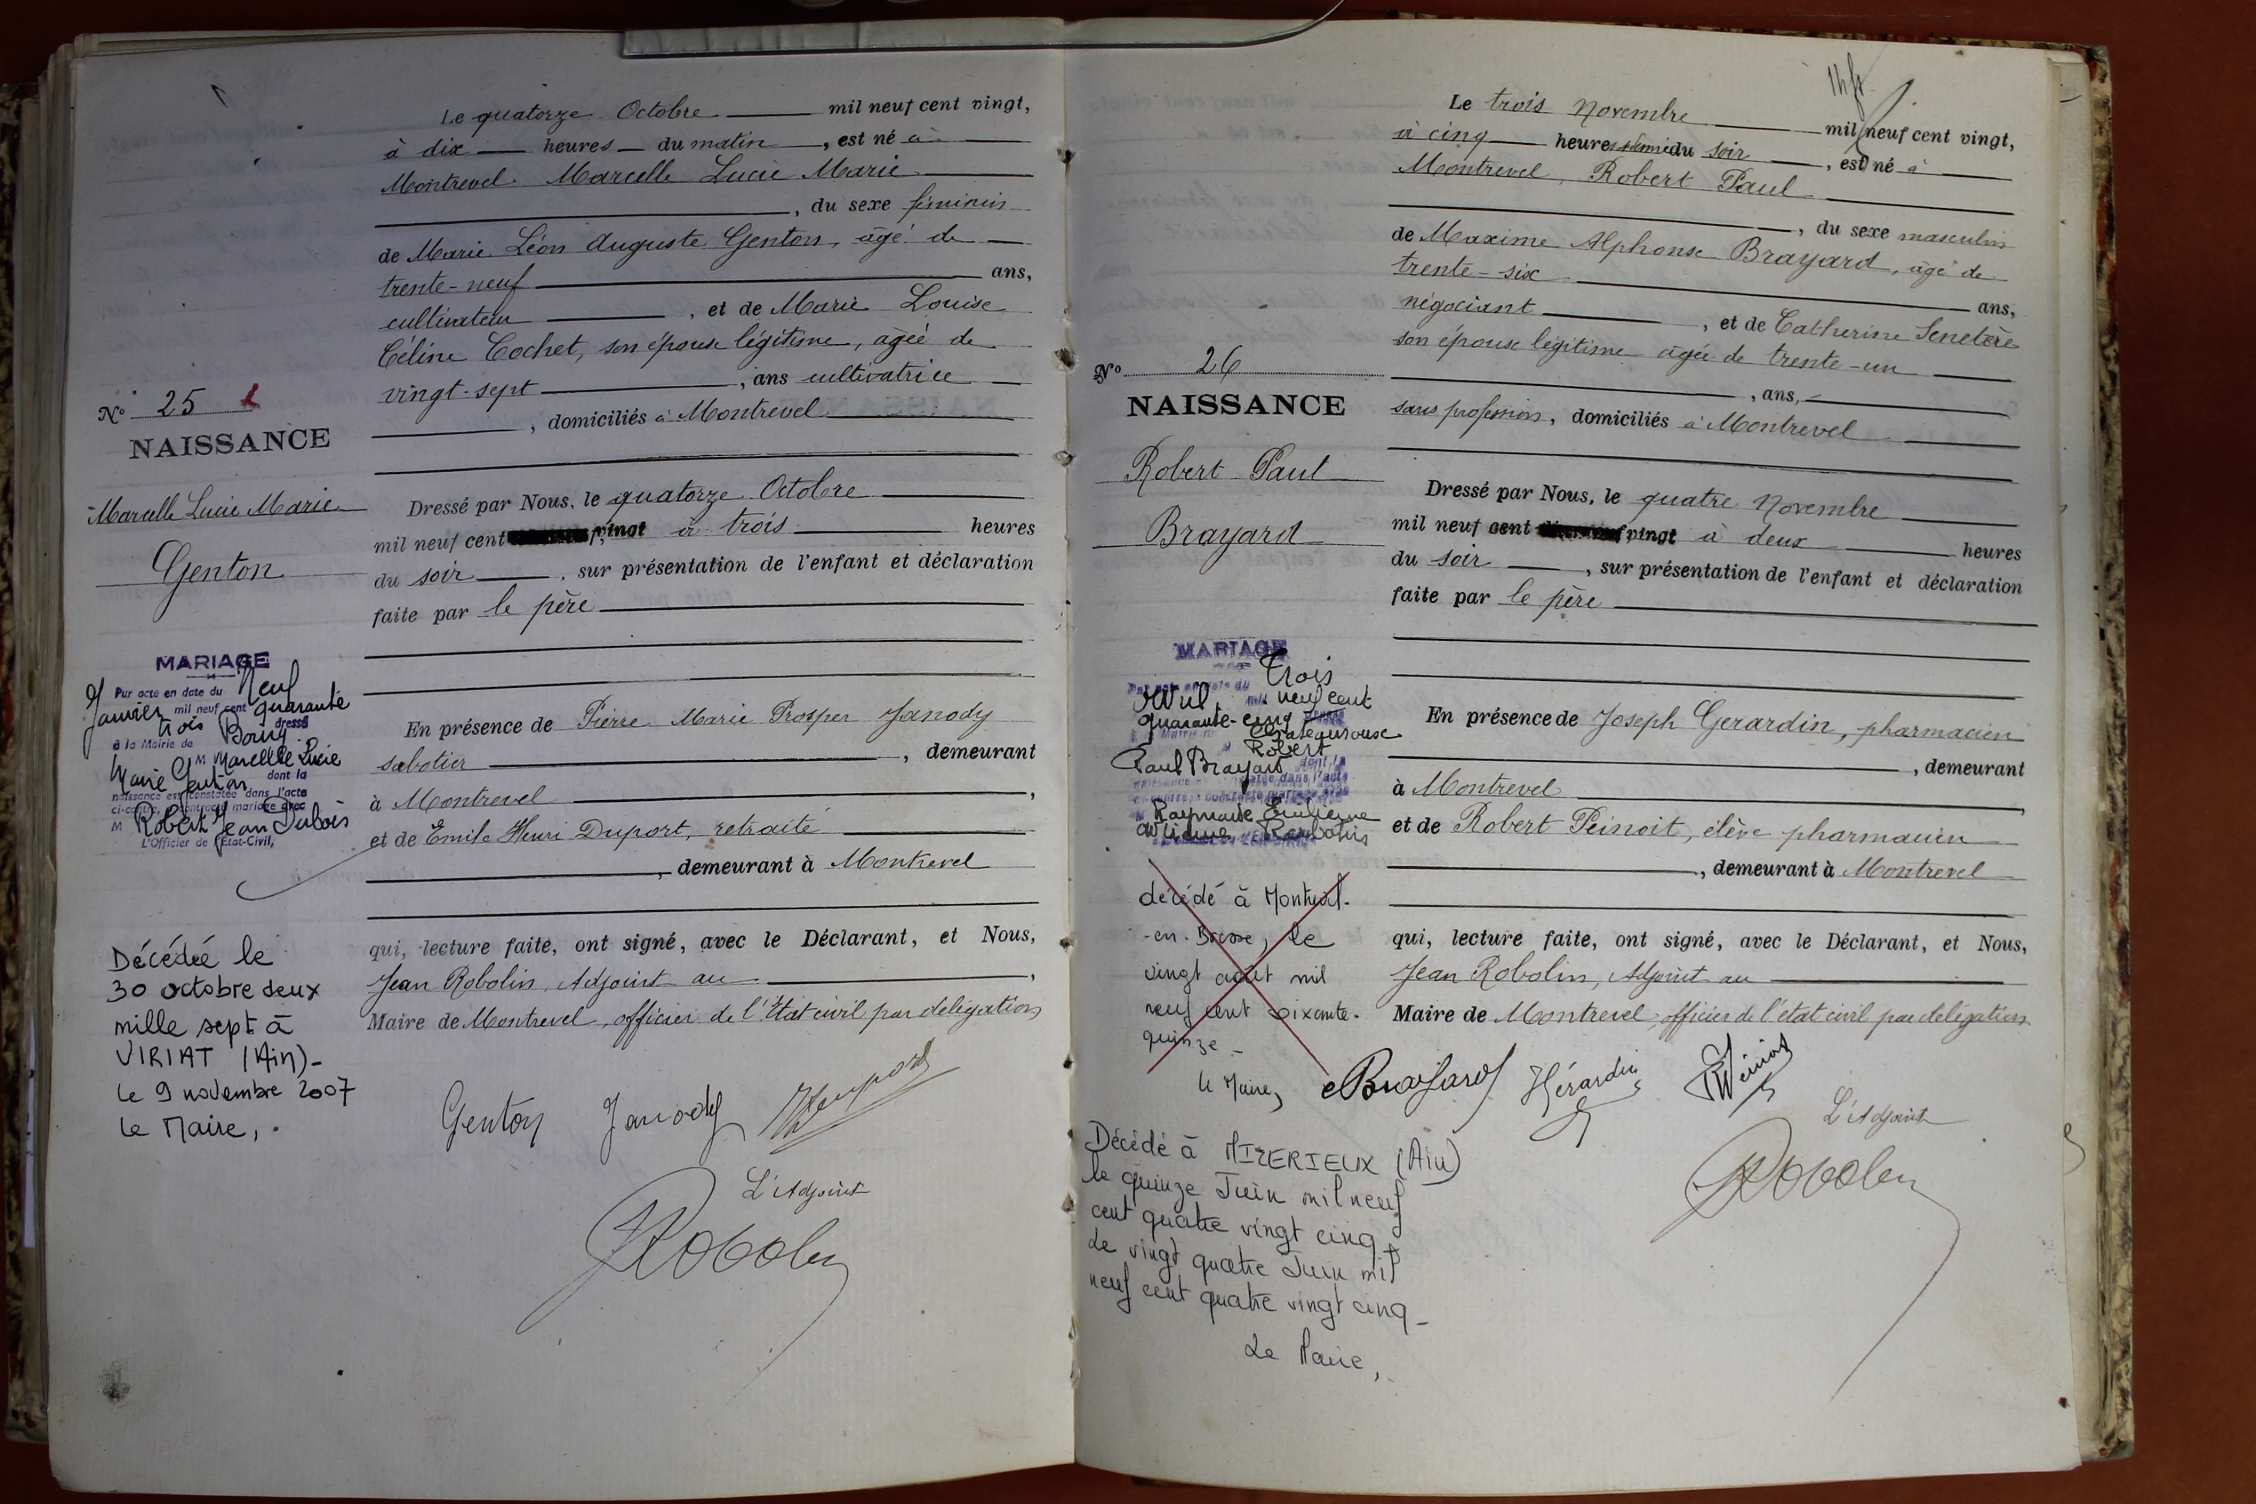 Le quatorze Octobre mil neuf cent vingt,
à dix heures du matin, est né à
Montrevel. Marcelle Lucie Marie
, du sexe féminin
de Marie Léon Auguste Genton, âgé de
trente-neuf ans,
cultivateur, et de Marie Louise
Céline Cochet, son épouse légitime, âgée de
vingt-sept, ans cultivatrice
, domiciliés à Montrevel
No 25
NAISSANCE
Marcelle Lucie Marie
Genton
Dressé par Nous, le quatorze Octobre
mil neuf cent vingt à trois heures
du soir, sur présentation de l'enfant et déclaration
faite par le père
MARIAGE
Par acte en date du Neuf
Janvier mil neuf cent quarante
trois dressé
à la Mairie de Bourg
M Marcelle Lucie
Marie Genton dont la
naissance est constatée dans l'acte
ci-contre, a contracté mariage avec
M Robert Jean Dubois
L'Officier de l'Etat-Civil,
En présence de Pierre Marie Prosper Janody
sabotier, demeurant
à Montrevel,
et de Emile Henri Duport, retraité
, demeurant à Montrevel
qui, lecture faite, ont signé, avec le Déclarant, et Nous,
Jean Robolin, Adjoint au,
Maire de Montrevel, officier de l'Etat civil par délégation
Décédée le
30 octobre deux
mille sept à
VIRIAT (Ain)-
Le 9 novembre 2007
Le Maire,
Genton Janody Duport
L'Adjoint
Robolin
Le trois Novembre mil neuf cent vingt,
à cinq heures demie du soir, est né à
Montrevel, Robert Paul
, du sexe masculin
de Maxime Alphonse Brayard, âgé de
trente-six ans,
négociant, et de Catherine Senetère
son épouse légitime âgée de trente-un
, ans,
sans profession, domiciliés à Montrevel
No 26
NAISSANCE
Robert Paul
Brayard
Dressé par Nous, le quatre Novembre
mil neuf cent vingt à deux heures
du soir, sur présentation de l'enfant et déclaration
faite par le père
MARIAGE
Trois
Avril mil neuf cent
quarante-cinq
Robert
Paul Brayard dont la
Raymonde
En présence de Joseph Gerardin, pharmacien
, demeurant
à Montrevel,
et de Robert Peinoit, élève pharmacien
, demeurant à Montrevel
qui, lecture faite, ont signé, avec le Déclarant, et Nous,
Jean Robolin, Adjoint au
Maire de Montrevel, officier de l'état civil par délégation
décédé à Montrevel-
-en-Bresse, le
vingt août mil
neuf cent soixante-
quinze -
Le Maire,
Brayard Gérardin
L'Adjoint
Robolin
Décédé à MIZERIEUX (Ain)
le quinze Juin mil neuf
cent quatre vingt cinq
Le vingt quatre Juin mil
neuf cent quatre vingt cinq -
Le Maire,